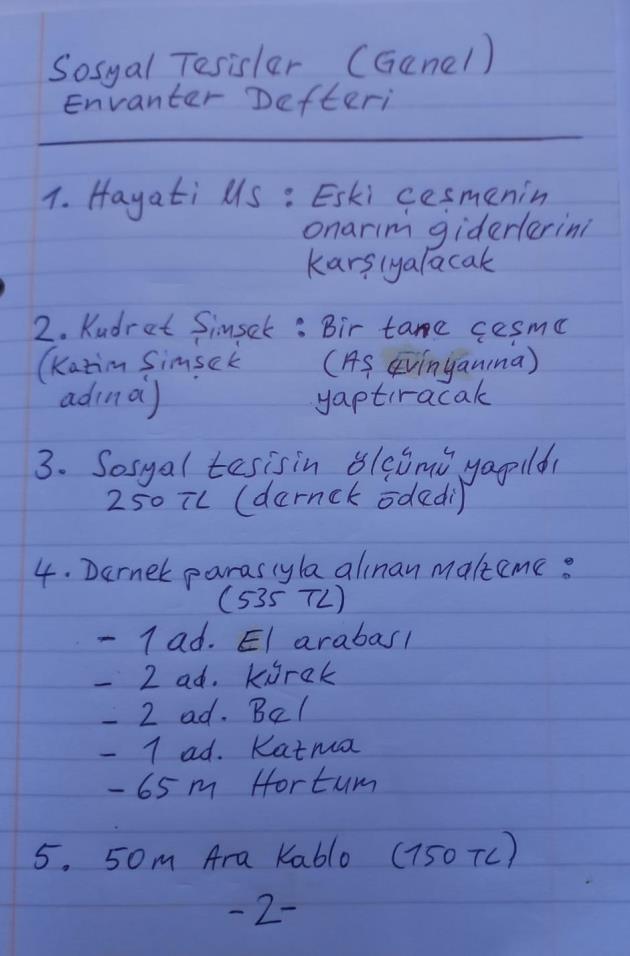 Sosyal Tesisler (Genel)
Envanter Defteri
1. Hayati Us : Eski çeşmenin
onarım giderlerini
karşıyalacak
2. Kudret Şimşek : Bir tane çeşme
(Kazim Şimşek (Aş evinyanına)
adına) yaptıracak
3. Sosyal tesisin ölçümü yapıldı
250 TL (dernek ödedi)
4. Dernek parasıyla alınan malzeme :
(535 TL)
- 1 ad. El arabası
- 2 ad. Kürek
- 2 ad. Bel
- 1 ad. Kazma
- 65 m Hortum
5. 50m Ara Kablo (150 TL)
-2-